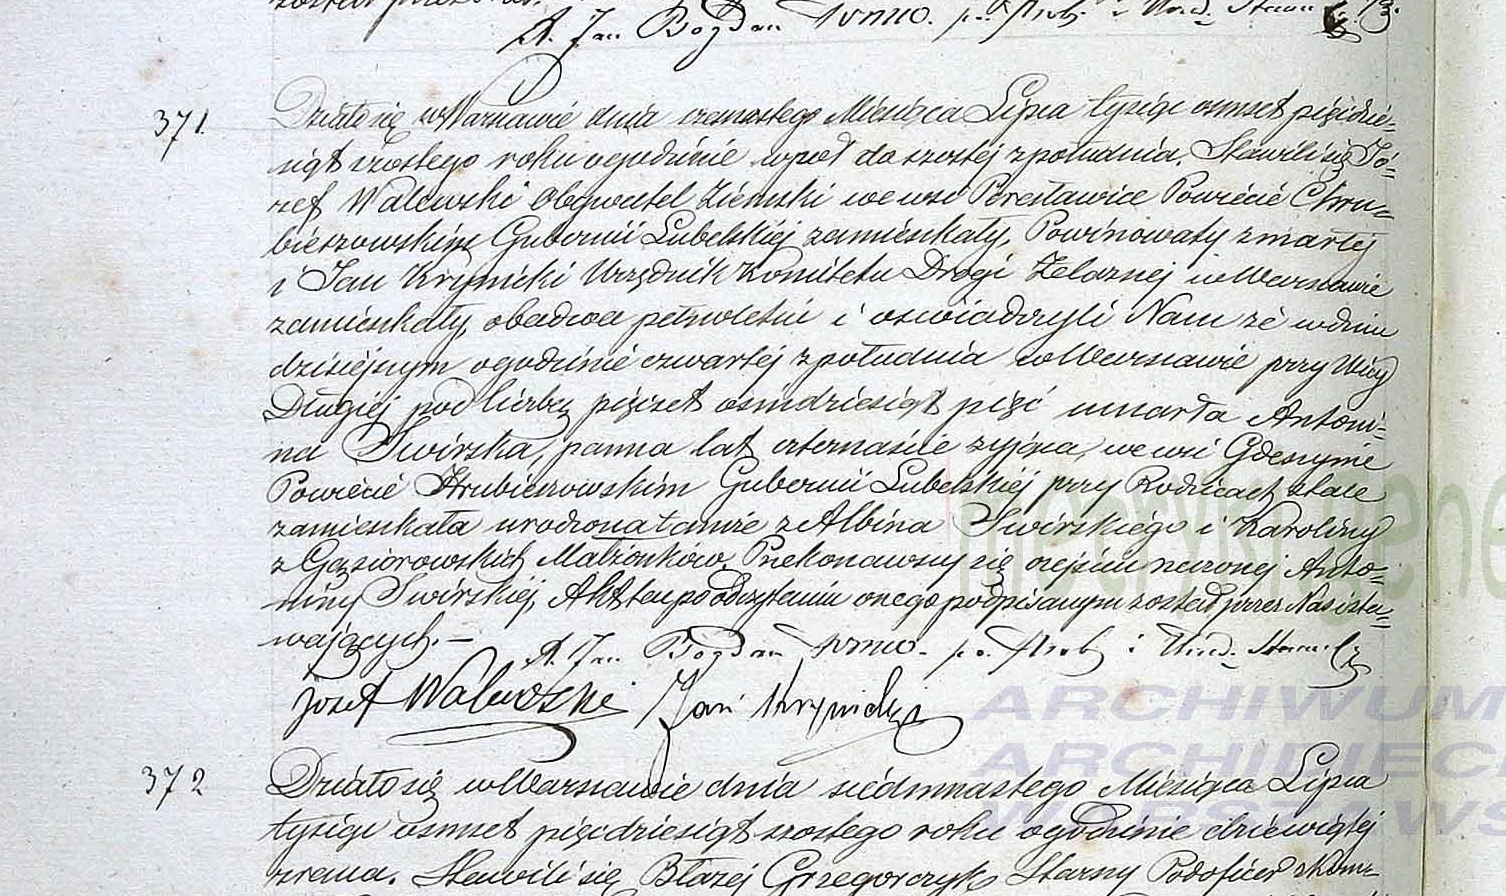 A. Jan Bogdan
371.
Działo się w Warszawie dnia szesnastego Miesiąca Lipca tysiąc osmset pięćdzie-
siąt szostego roku o godzinie wpoł do szostej z południa. Stawili się Jó-
zef Walewski Obywatel Ziemski we wsi Peresławice Powiecie Chru-
bieszowskim Gubernii Lubelskiej zamieszkały, Powinowaty zmarłej
i Jan Krynicki Urzędnik Komitetu Drogi Żelaznej w Warszawie
zamieszkały, obadwa pełnoletni i oswiadczyli Nam że w dniu
dzisiejszym o godzinie czwartej z południa w Warszawie przy Ulicy
Długiej pod liczbą pięcset osmdziesiąt pięć umarła Antoni-
na Swirska, panna lat czternaście żyjąca, we wsi Gdeszynie
Powiecie Hrubieszowskim Gubernii Lubelskiej przy Rodzicach stale
zamieszkała urodzona tamże z Albina Swirskiego i Karoliny
z Gąsiorowskich Małżonków. Przekonawszy się o zejściu rzeczonej Anto-
niny Swirskiej, Akt ten po odczytaniu onego podpisanym został przez Nas i sta-
wających. —
A. Jan Bogdan
Józef Walewski Jan Krynicki
372
Działo się w Warszawie dnia siedmnastego Miesiąca Lipca
tysiąc osmset pięćdziesiąt szostego roku o godzinie dziewiątej
zrana. Stawili się Błażej Grzegorczyk Starszy Podoficer
metryki.gene
ARCHIWUM
ARCHIDIECE
WARSZAWS